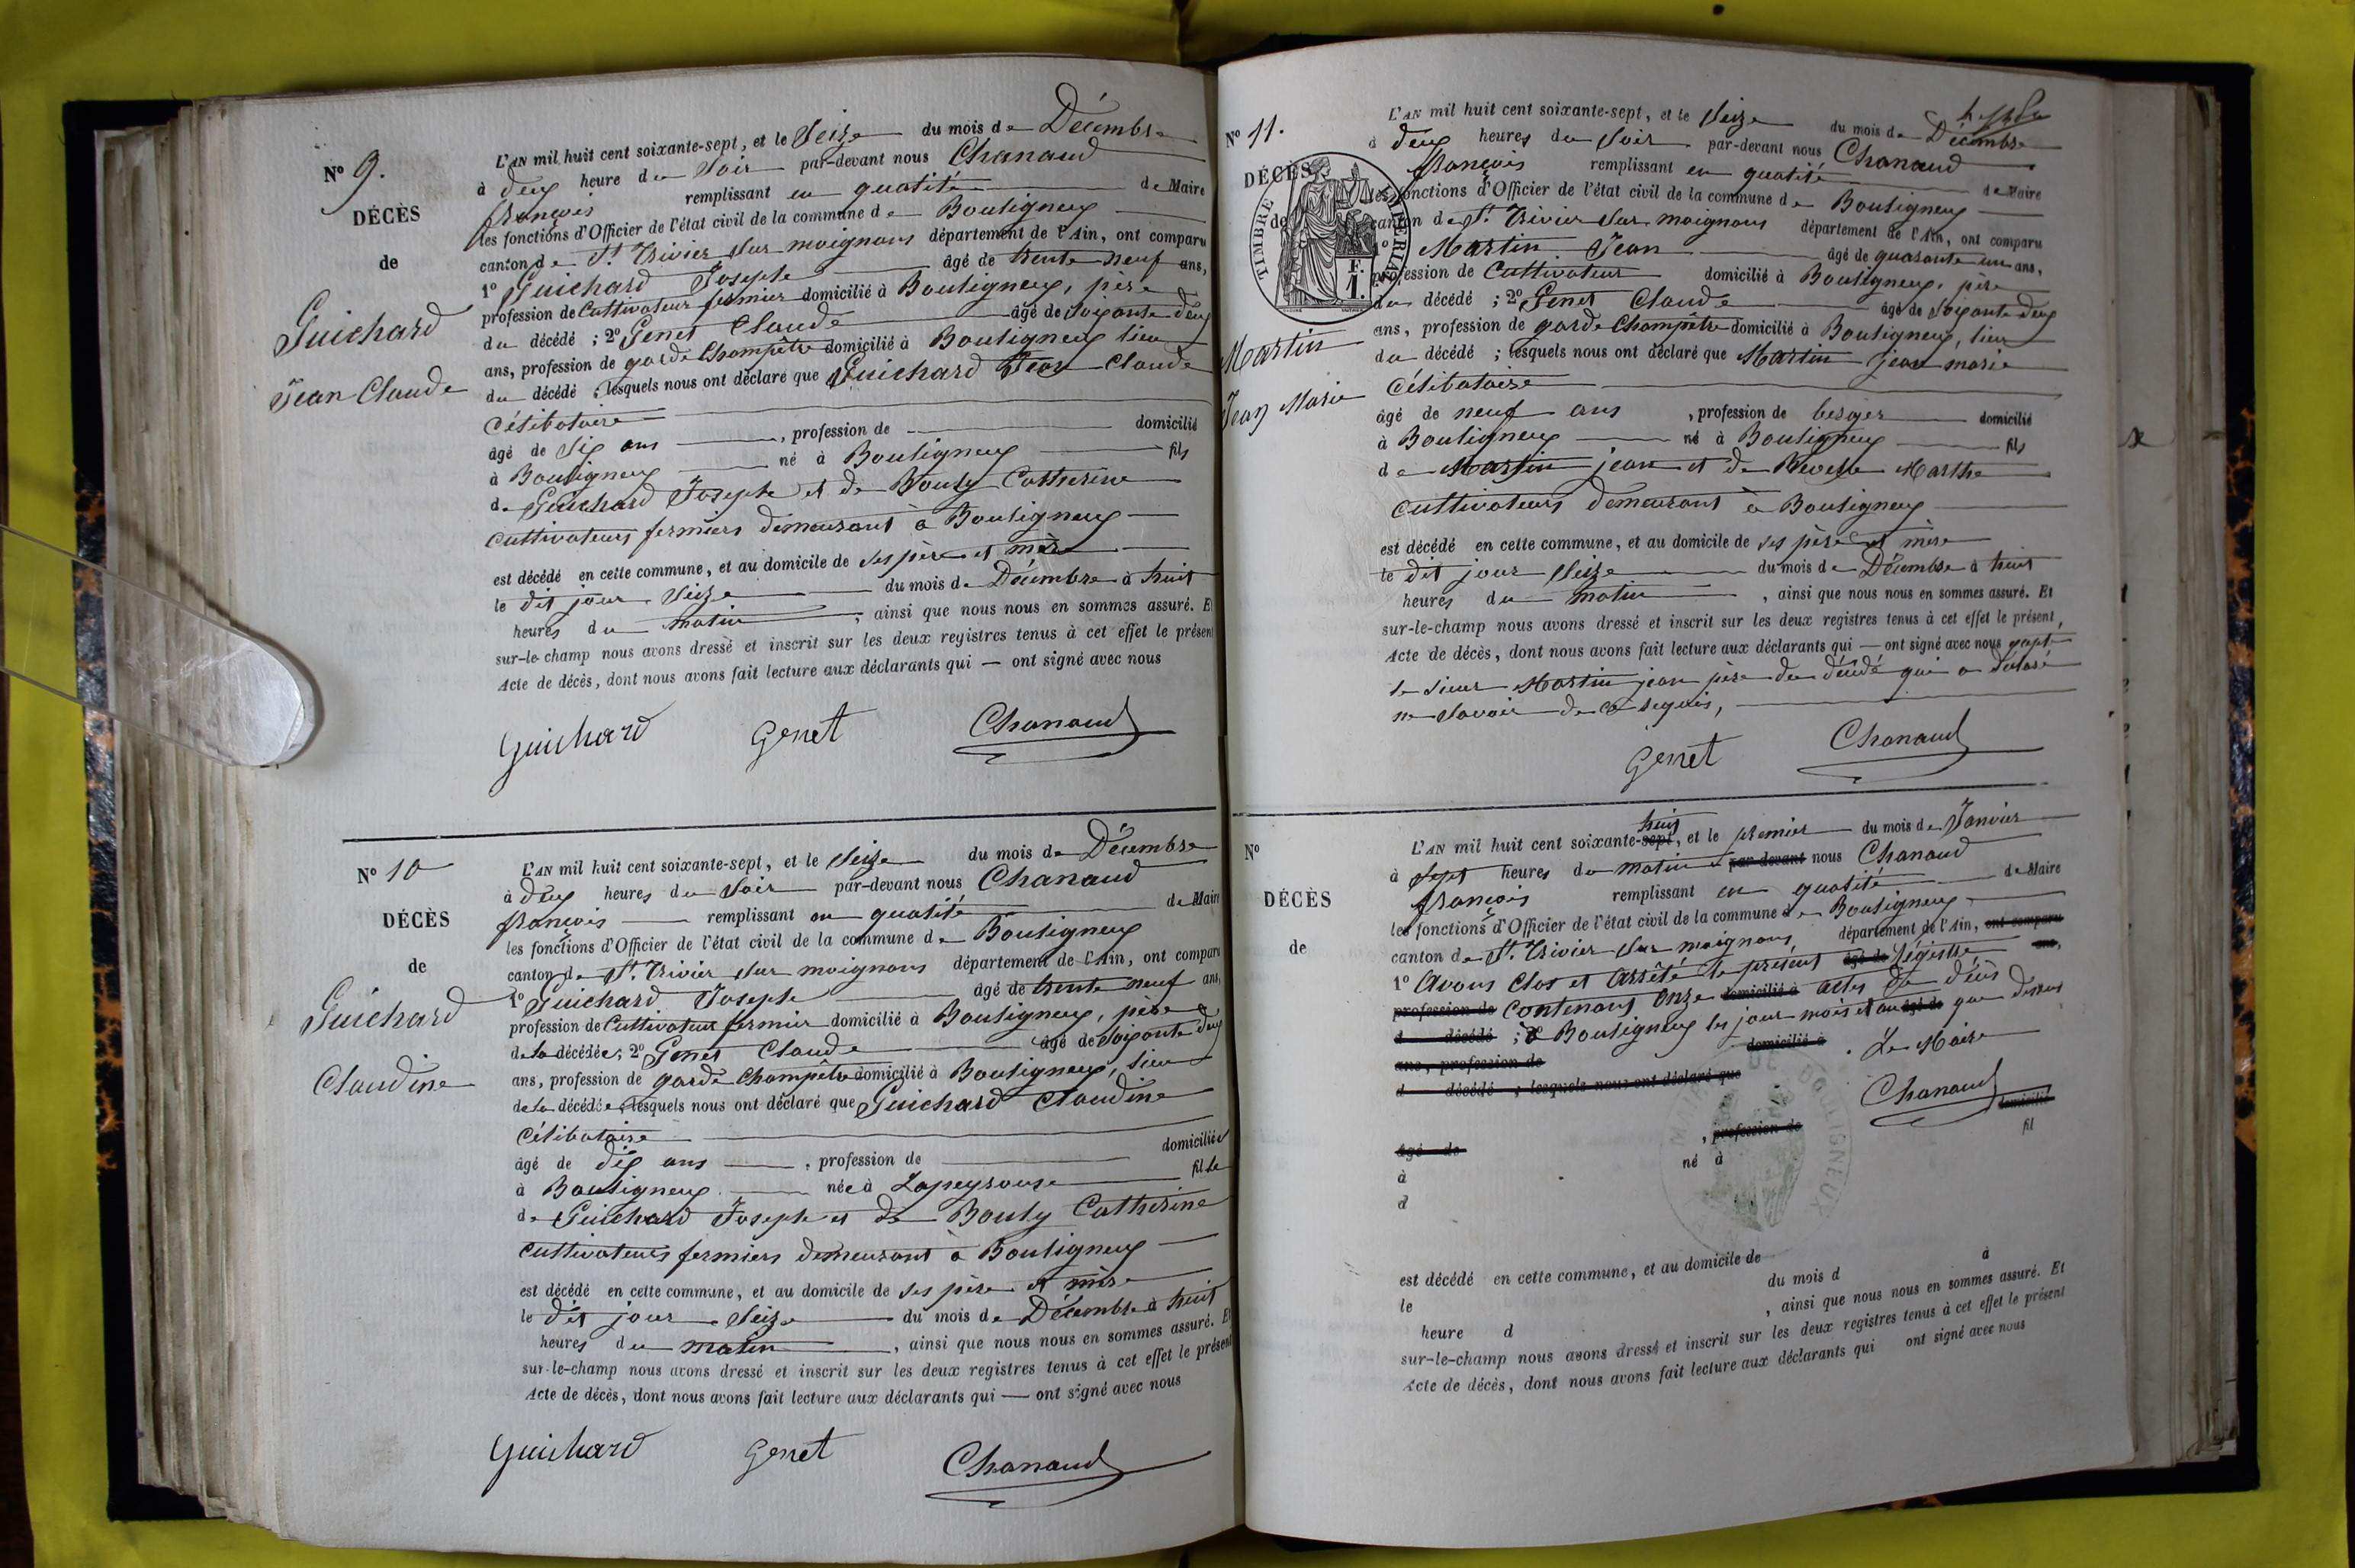 N° 9.
DÉCÈS
de
Guichard
Jean Claude
L'AN mil huit cent soixante-sept, et le Seize du mois de Décembre
à deux heure du Soir par-devant nous Chanaud
françois remplissant en qualité de Maire
les fonctions d'Officier de l'état civil de la commune de Bouligneux
canton de St. Trivier sur moignans département de l'Ain, ont comparu
1° Guichard Joseph âgé de trente neuf ans,
profession de Cultivateur fermier domicilié à Bouligneux, père
du décédé ; 2° Genet Claude âgé de Soixante deux
ans, profession de garde Champêtre domicilié à Bouligneux lieu
du décédé ; lesquels nous ont déclaré que Guichard Jean Claude
Célibataire
âgé de Six ans , profession de domicilié
à Bouligneux né à Bouligneux fils
de Guichard Joseph et de Bouly Catherine
Cultivateurs fermiers demeurant à Bouligneux
est décédé en cette commune, et au domicile de ses père et mère
le dit jour Seize du mois de Décembre à huit
heures du matin , ainsi que nous nous en sommes assuré. Et
sur-le-champ nous avons dressé et inscrit sur les deux registres tenus à cet effet le présent
Acte de décès, dont nous avons fait lecture aux déclarants qui — ont signé avec nous
Guichard Genet Chanaud
N° 10
DÉCÈS
de
Guichard
Claudine
L'AN mil huit cent soixante-sept, et le Seize du mois de Décembre
à deux heures du Soir par-devant nous Chanaud
françois remplissant en qualité de Maire
les fonctions d'Officier de l'état civil de la commune de Bouligneux
canton de St. Trivier sur moignans département de l'Ain, ont comparu
1° Guichard Joseph âgé de trente neuf ans,
profession de Cultivateur fermier domicilié à Bouligneux, père
de la décédée; 2° Genet Claude âgé de Soixante deux
ans, profession de garde Champêtre domicilié à Bouligneux, lieu
de la décédée ; lesquels nous ont déclaré que Guichard Claudine
Célibataire
âgé de dix ans , profession de domiciliée
à Bouligneux née à Lapeyrouse fille
de Guichard Joseph et de Bouly Catherine
Cultivateurs fermiers demeurant à Bouligneux
est décédé en cette commune, et au domicile de ses père et mère
le dit jour Seize du mois de Décembre à huit
heures du matin , ainsi que nous nous en sommes assuré. Et
sur-le-champ nous avons dressé et inscrit sur les deux registres tenus à cet effet le présent
Acte de décès, dont nous avons fait lecture aux déclarants qui — ont signé avec nous
Guichard Genet Chanaud
N° 11.
DÉCÈS
de
TIMBRE IMPERIAL
F.
1.
Martin
Jean Marie
L'AN mil huit cent soixante-sept, et le Seize du mois de Décembre
à deux heures du Soir par-devant nous Chanaud
françois remplissant en qualité de Maire
les fonctions d'Officier de l'état civil de la commune de Bouligneux
canton de St. Trivier sur moignans département de l'Ain, ont comparu
1° Martin Jean âgé de quarante un ans,
profession de Cultivateur domicilié à Bouligneux, père
du décédé ; 2° Genet Claude âgé de Soixante deux
ans, profession de garde Champêtre domicilié à Bouligneux, lieu
du décédé ; lesquels nous ont déclaré que Martin jean marie
Célibataire
âgé de neuf ans , profession de berger domicilié
à Bouligneux né à Bouligneux fils
de Martin jean et de Marthe
Cultivateurs demeurant à Bouligneux
est décédé en cette commune, et au domicile de ses père et mère
le dit jour Seize du mois de Décembre à huit
heures du matin , ainsi que nous nous en sommes assuré. Et
sur-le-champ nous avons dressé et inscrit sur les deux registres tenus à cet effet le présent,
Acte de décès, dont nous avons fait lecture aux déclarants qui — ont signé avec nous
le sieur Martin jean père du décédé qui a déclaré
ne savoir de ce requis,
Genet Chanaud
N°
DÉCÈS
de
L'AN mil huit cent soixante-sept huit, et le premier du mois de Janvier
à Sept heures du matin par-devant nous Chanaud
françois remplissant en qualité de Maire
les fonctions d'Officier de l'état civil de la commune de Bouligneux
canton de St. Trivier sur moignans, département de l'Ain, ont comparu
1° Avons Clos et Arrêté le présent âgé de Régistre ans,
profession de Contenant Onze domicilié à actes de décès
d décédé ; à Bouligneux les jour mois et an âgé de que dessus
ans, profession de domicilié à . Le Maire
d décédé ; lesquels nous ont déclaré que
Chanaud
domicilié
âgé de , profession de fil
à né à
d
BOULIGNEUX
est décédé en cette commune, et au domicile de
le du mois d à
heure d , ainsi que nous nous en sommes assuré. Et
sur-le-champ nous avons dressé et inscrit sur les deux registres tenus à cet effet le présent
Acte de décès, dont nous avons fait lecture aux déclarants qui ont signé avec nous